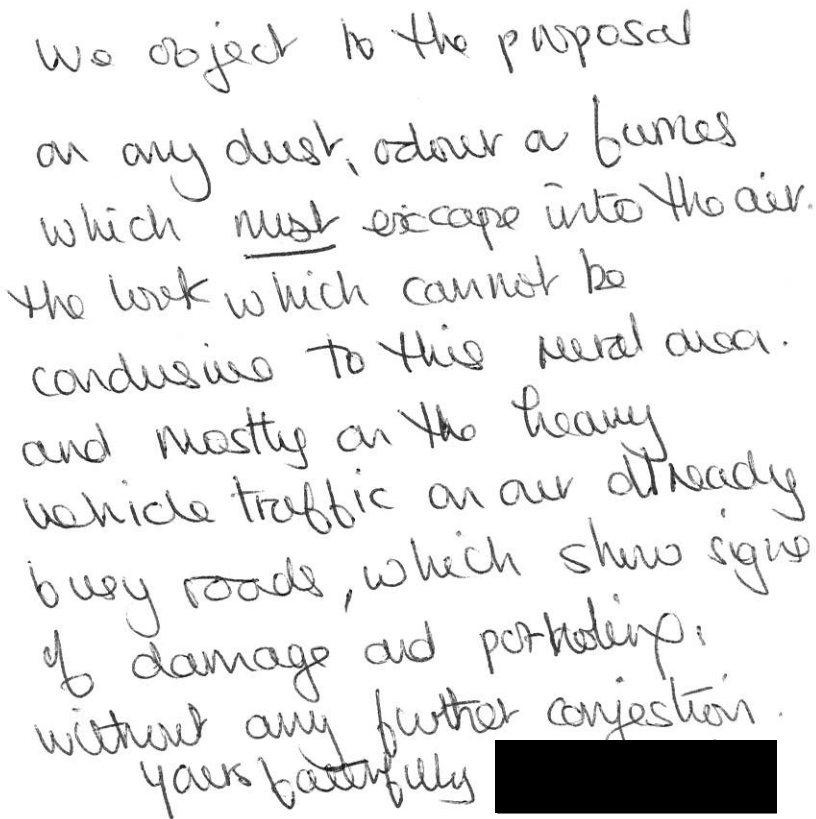 We object to the proposal
on any dust, odour or fumes
which must escape into the air.
the look which cannot be
condusive to this rural area.
and mostly on the heavy
vehicle traffic on our already
busy roads, which show signs
of damage and potholing,
without any further conjestion.
yours faithfully